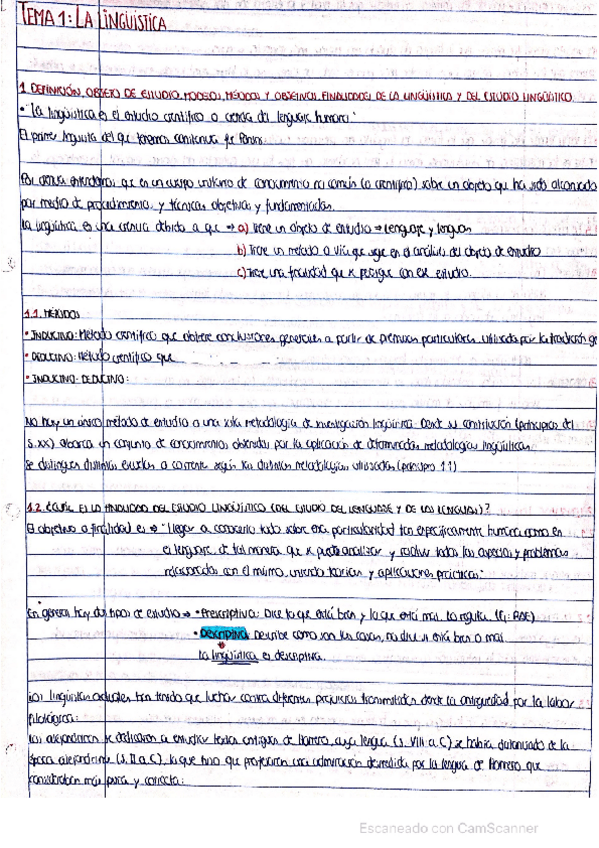 TEMA 1: LA LINGÜÍSTICA
1. DEFINICIÓN, OBJETO DE ESTUDIO, MODELOS, MÉTODOS Y OBJETIVOS, FINALIDADES DE LA LINGÜÍSTICA Y DEL ESTUDIO LINGÜÍSTICO
• "La lingüística es el estudio científico o ciencia del lenguaje humano"
El primer lingüista del que tenemos constancia fue
Por ciencia entendemos que es un cuerpo unitario de conocimiento no común (o científico) sobre un objeto que ha sido alcanzado
por medio de procedimientos y técnicas objetivas y fundamentadas.
La lingüística es una ciencia debido a que → a) tiene un objeto de estudio → lenguaje y lenguas
b) Tiene un método o vía que sigue en el análisis del objeto de estudio
c) Tiene una finalidad que se persigue con ese estudio.
1.1. MÉTODOS
• INDUCTIVO: Método científico que obtiene conclusiones generales a partir de premisas particulares, utilizada por la tradición
• DEDUCTIVO: Método científico que
• INDUCTIVO-DEDUCTIVO:
No hay un único método de estudio o una sola metodología de investigación lingüística. Desde su constitución (principios del
s. XX) abarca un conjunto de conocimientos obtenidos por la aplicación de determinadas metodologías lingüísticas.
Se distinguen distintas escuelas o corrientes según las distintas metodologías utilizadas (principio 1.1)
1.2. ¿CUÁL ES LA FINALIDAD DEL ESTUDIO LINGÜÍSTICO (DEL ESTUDIO DEL LENGUAJE Y DE LAS LENGUAS)?
El objetivo o finalidad es → "llegar a conocerlo todo sobre esa particularidad tan específicamente humana como es
el lenguaje, de tal manera que se pueda analizar y resolver todos los aspectos y problemas
relacionados con el mismo, uniendo teorías y aplicaciones prácticas."
En general hay dos tipos de estudio → • PRESCRIPTIVA: Dice lo que está bien y lo que está mal. La regula. (Ej: RAE)
• DESCRIPTIVA: Describe como son las cosas, no dice si está bien o mal
La lingüística es descriptiva.
Los lingüistas actuales han tenido que luchar contra diferentes prejuicios transmitidos desde la antigüedad por la labor
filológica:
Los alejandrinos se dedicaron a estudiar textos antiguos de Homero, cuya lengua (s. VIII a.C) se había distanciado de la
época alejandrina (s. II a.C), lo que hizo que profesaran una admiración desmedida por la lengua de Homero que
consideraban más pura y correcta:
Escaneado con CamScanner